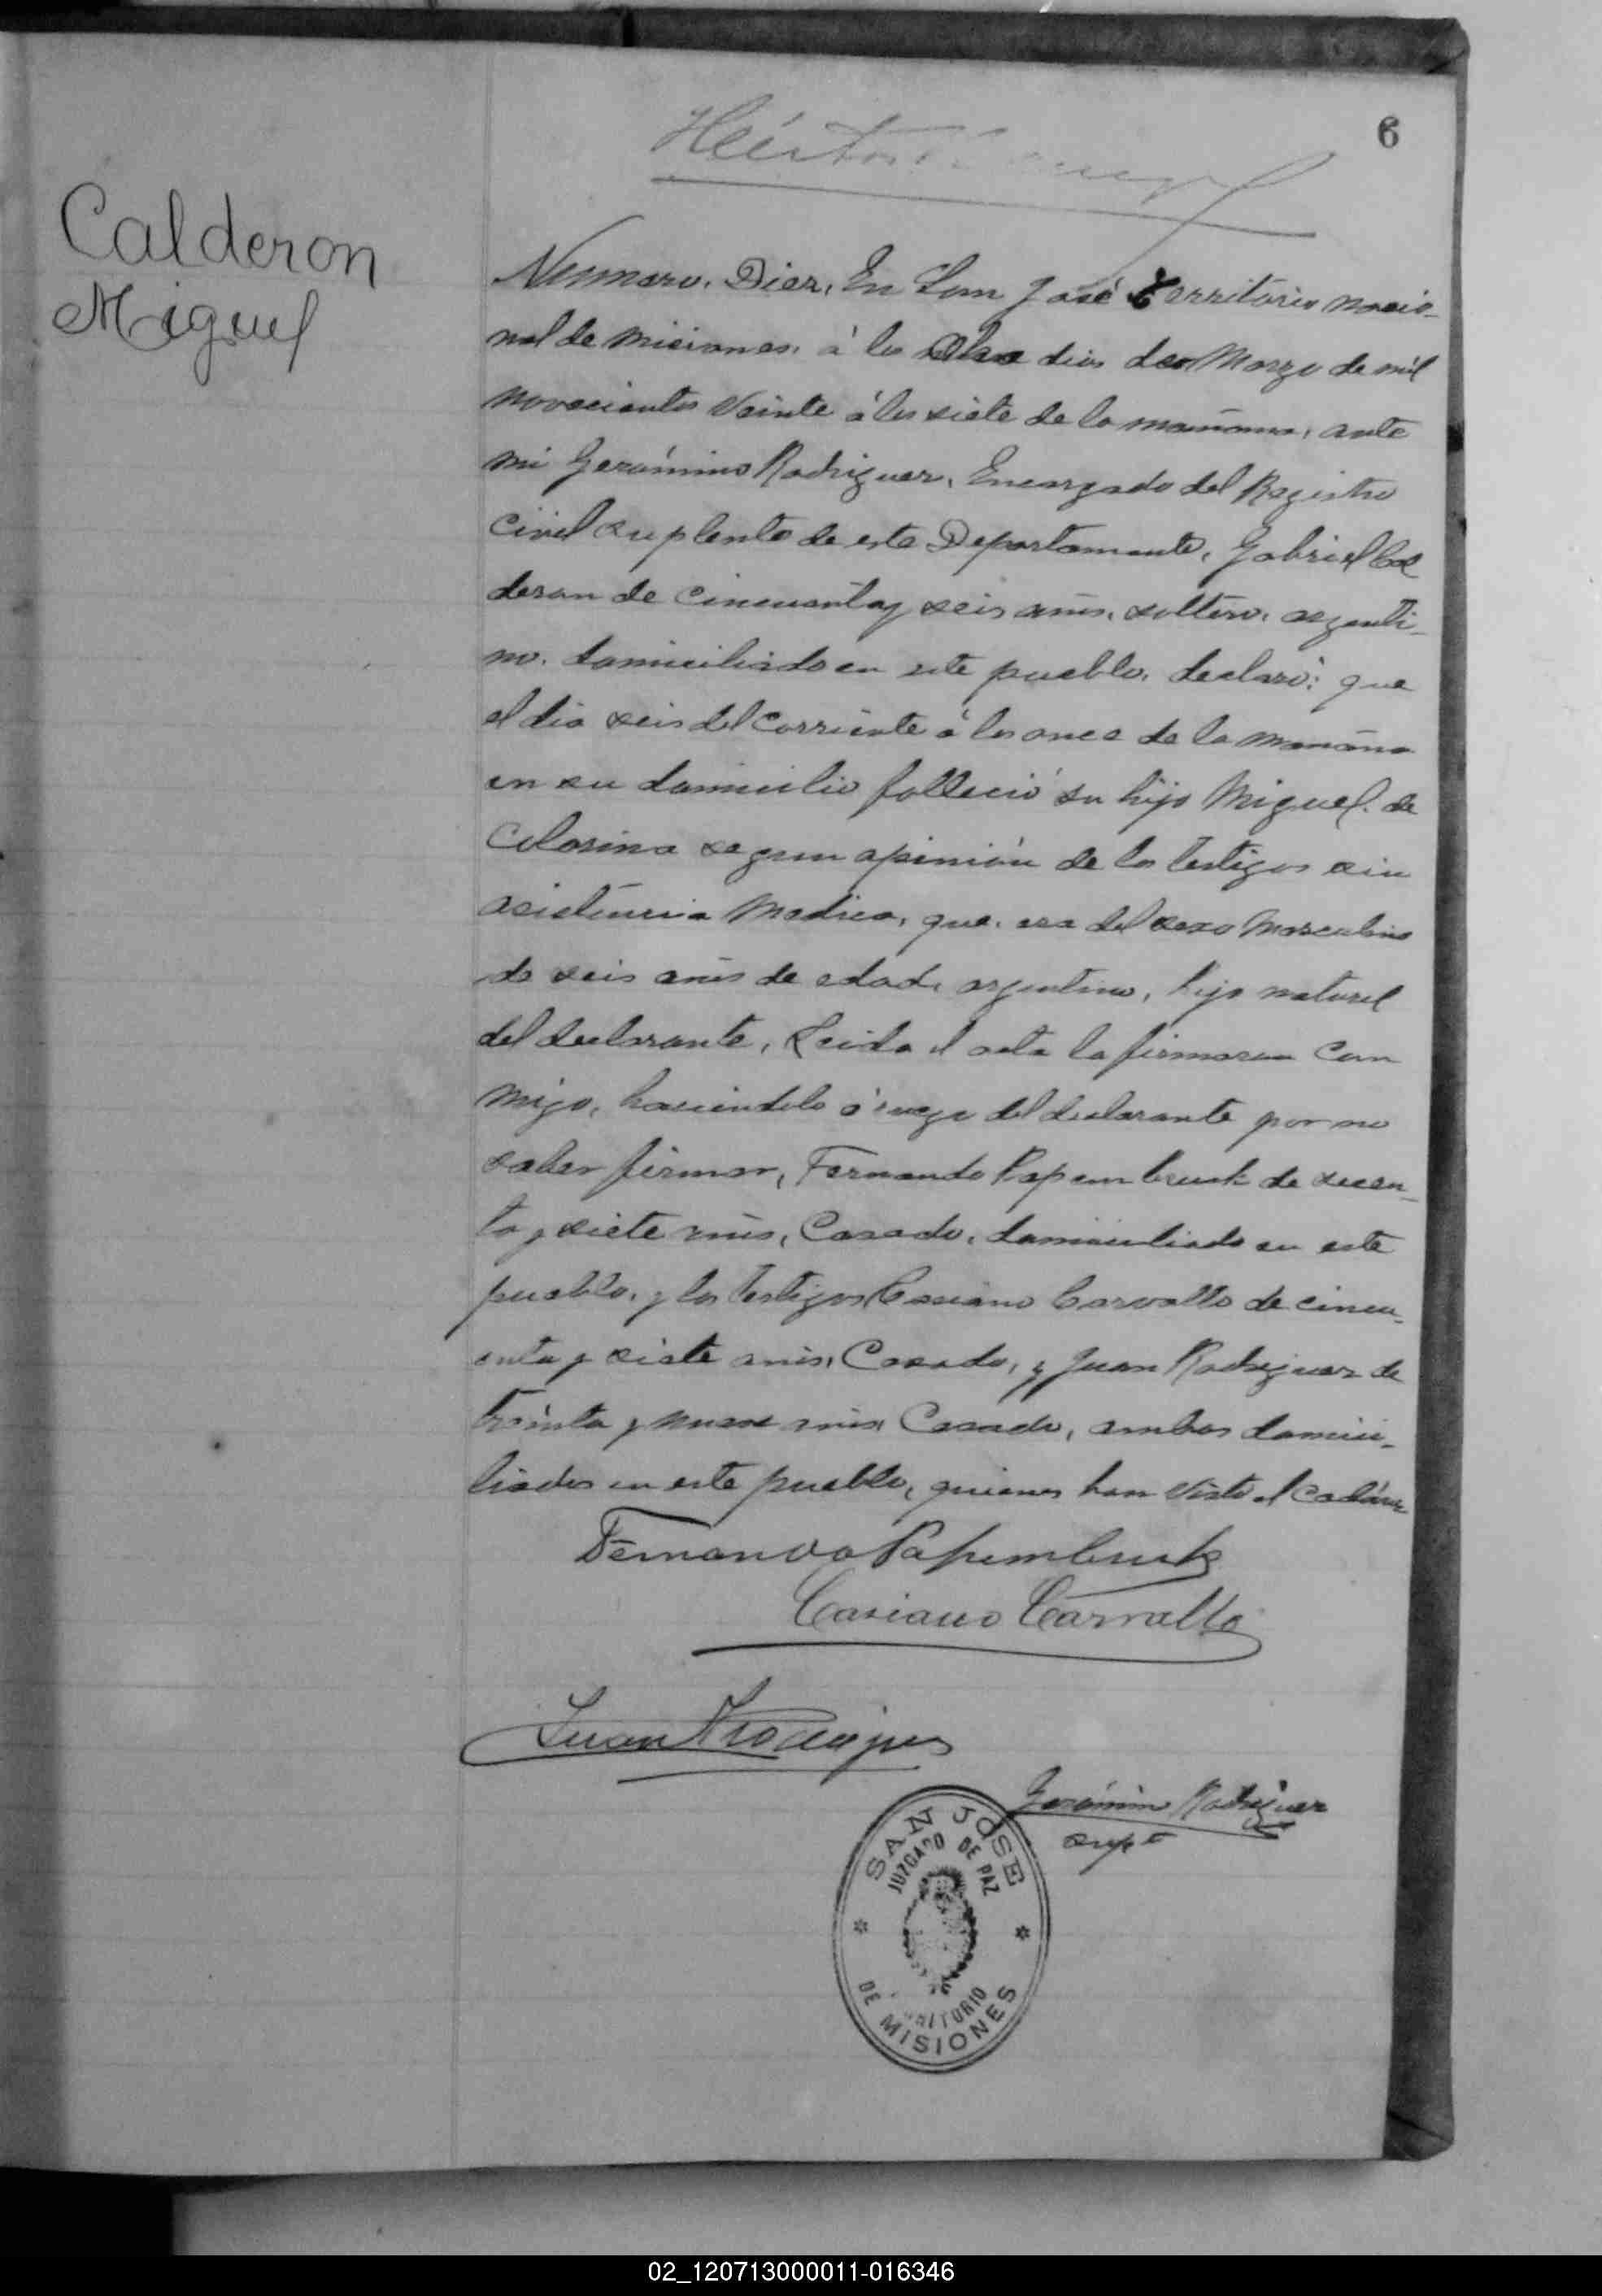 6
Calderon
Miguel
Nummero. Diez, En San José Territorio nacio-
nal de Misiones, á los dias de Marzo de mil
novecientos Veinte á las siete de la mañana, ante
mi Gerónimo Rodriguez, Encargado del Registro
Civil suplente de este Departamento, Gabriel Cal
deron de cincuenta y seis años, soltero, argenti-
no, domiciliado en este pueblo, declaró: que
el dia seis del Corriente á las once de la mañana
en su domicilio falleció su hijo Miguel. de
segun opinión de los testigos sin
asistencia Medica, que, era del sexo Masculino
de seis años de edad, argentino, hijo natural
del declarante, Leida el acta la firmaron Con
migo, haciendolo á ruego del declarante por no
saber firmar, Fernando Papembruck de sesen-
ta y siete años, Casado, domiciliado en este
pueblo, y los testigos Casiano Carvallo de cincu-
enta y siete años, Casado, y Juan Rodriguez de
treinta y nueve años Casado, ambos domici-
liados en este pueblo, quienes han visto el Cadáver
Fernando Papembruck
Casiano Carvallo
Juan Rodriguez
Gerónimo Rodriguez
supte
SAN JOSE
JUZGADO DE PAZ
TERRITORIO
DE MISIONES
02_120713000011-016346